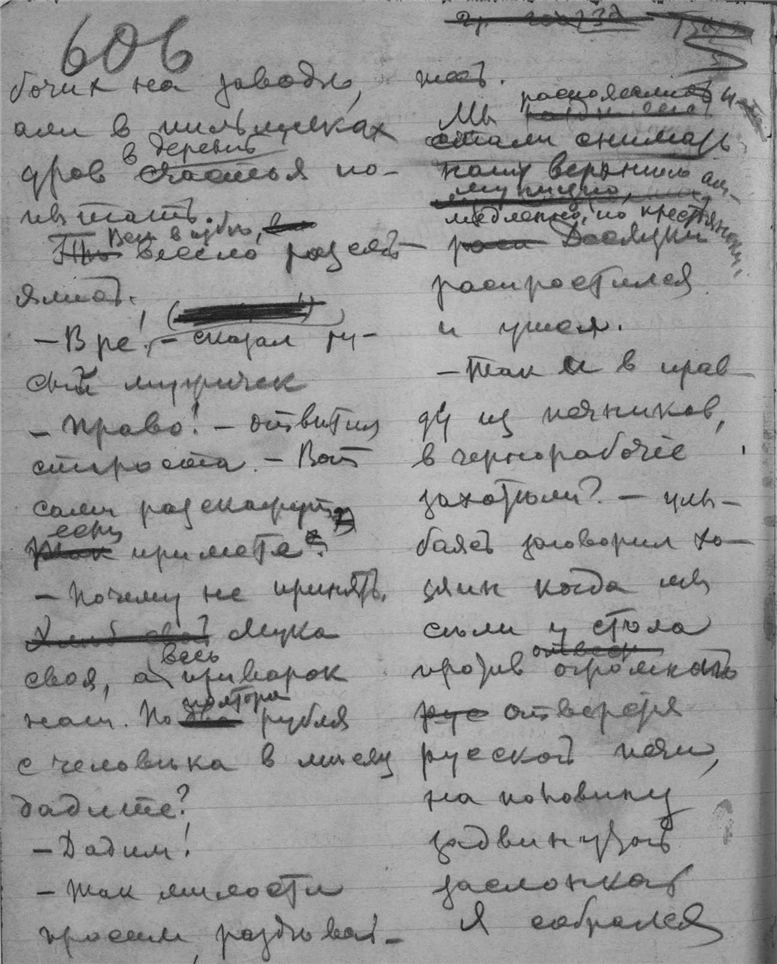 606
бочих на заводъ,
али в пильщиках
в деревнѣ
дров счастья по-
пытать.
Вся в избѣ,
весело разсмѣ-
ялись.
– Вре! – сказал ру-
сый мужичек
– Право! – отвѣтил
староста. – Вот
сами разскажут,
если
примете.
– Почему не принять.
Мука
своя, а весь приварок
наш. По полтора рубля
с человѣка в мѣсяц
дадите?
– Дадим!
– Так милости
просим, раздѣвай-
тесь.
Мы распоясались и
стали снимать
нашу верхнюю ам-
медленно, по крестьянски.
Десяцкий
распростился
и ушел.
– Так и в прав-
ду из печников,
в чернорабочіе
захотѣли? – улы-
баясь заговорил хо-
зяин когда мы
сѣли у стола
против огромнаго
отверстія
русской печи,
на половину
задвинутой
заслонкой
Я собрался